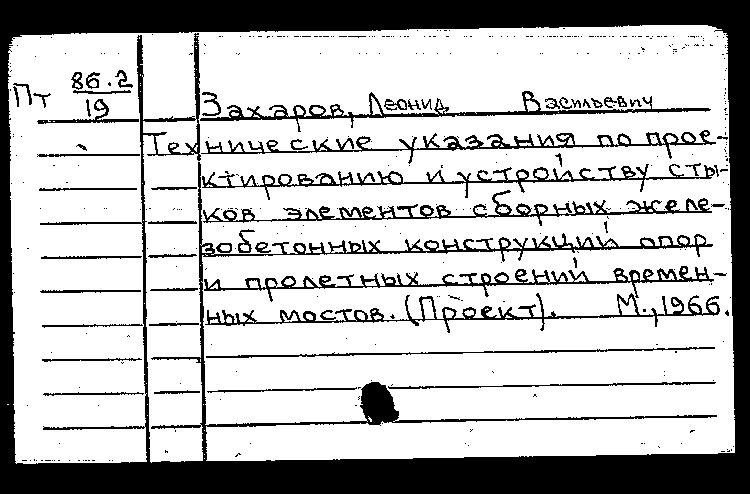 Пт 86.2
19
Захаров, Леонид Васильевич
Технические указания по прое-
ктированию и устройству сты-
ков элементов сборных желе-
зобетонных конструкций опор
и пролетных строений времен-
ных мостов. (Проект). М., 1966.